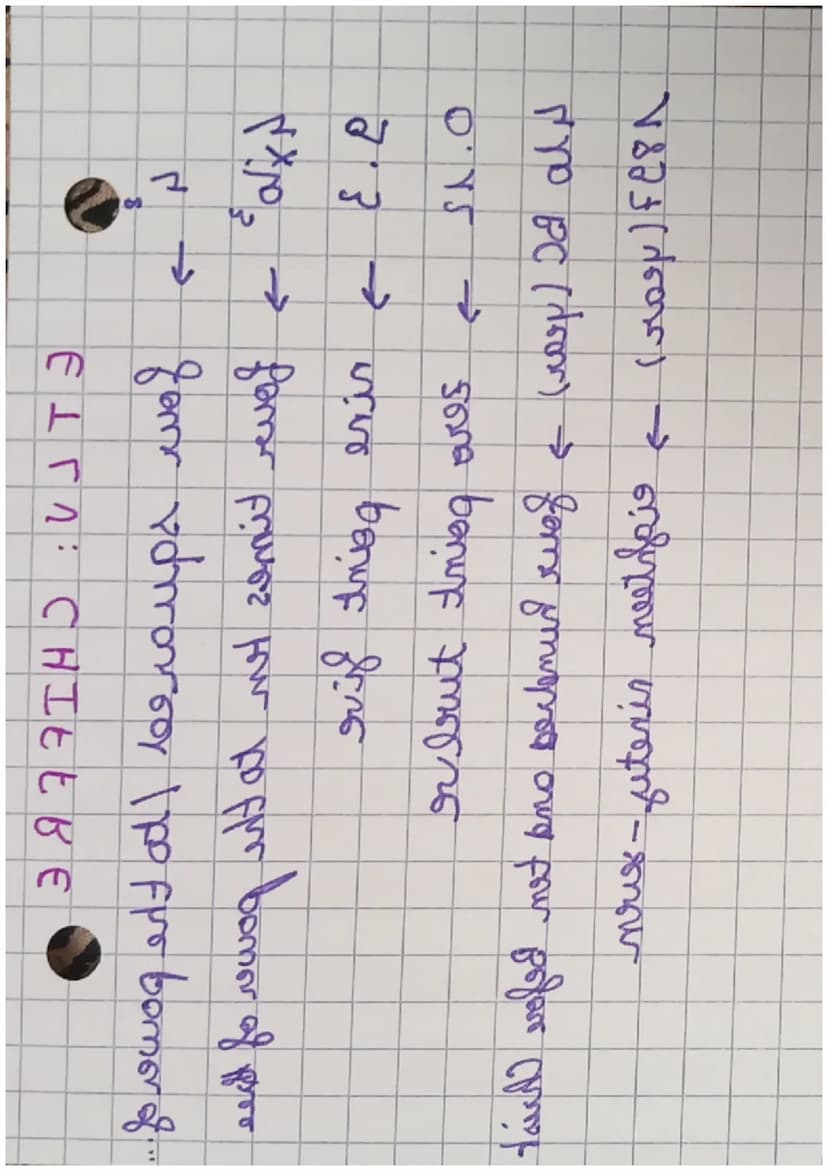 ETLV : CHIFFRE
4⁸ → four squared / to the power of...
4x10³ → four times ten to the power of three
9.3 → nine point five
0.12 → zero point twelve
410 BC (year) → four hundred and ten before Christ
1897 (year) → eighteen ninety-seven